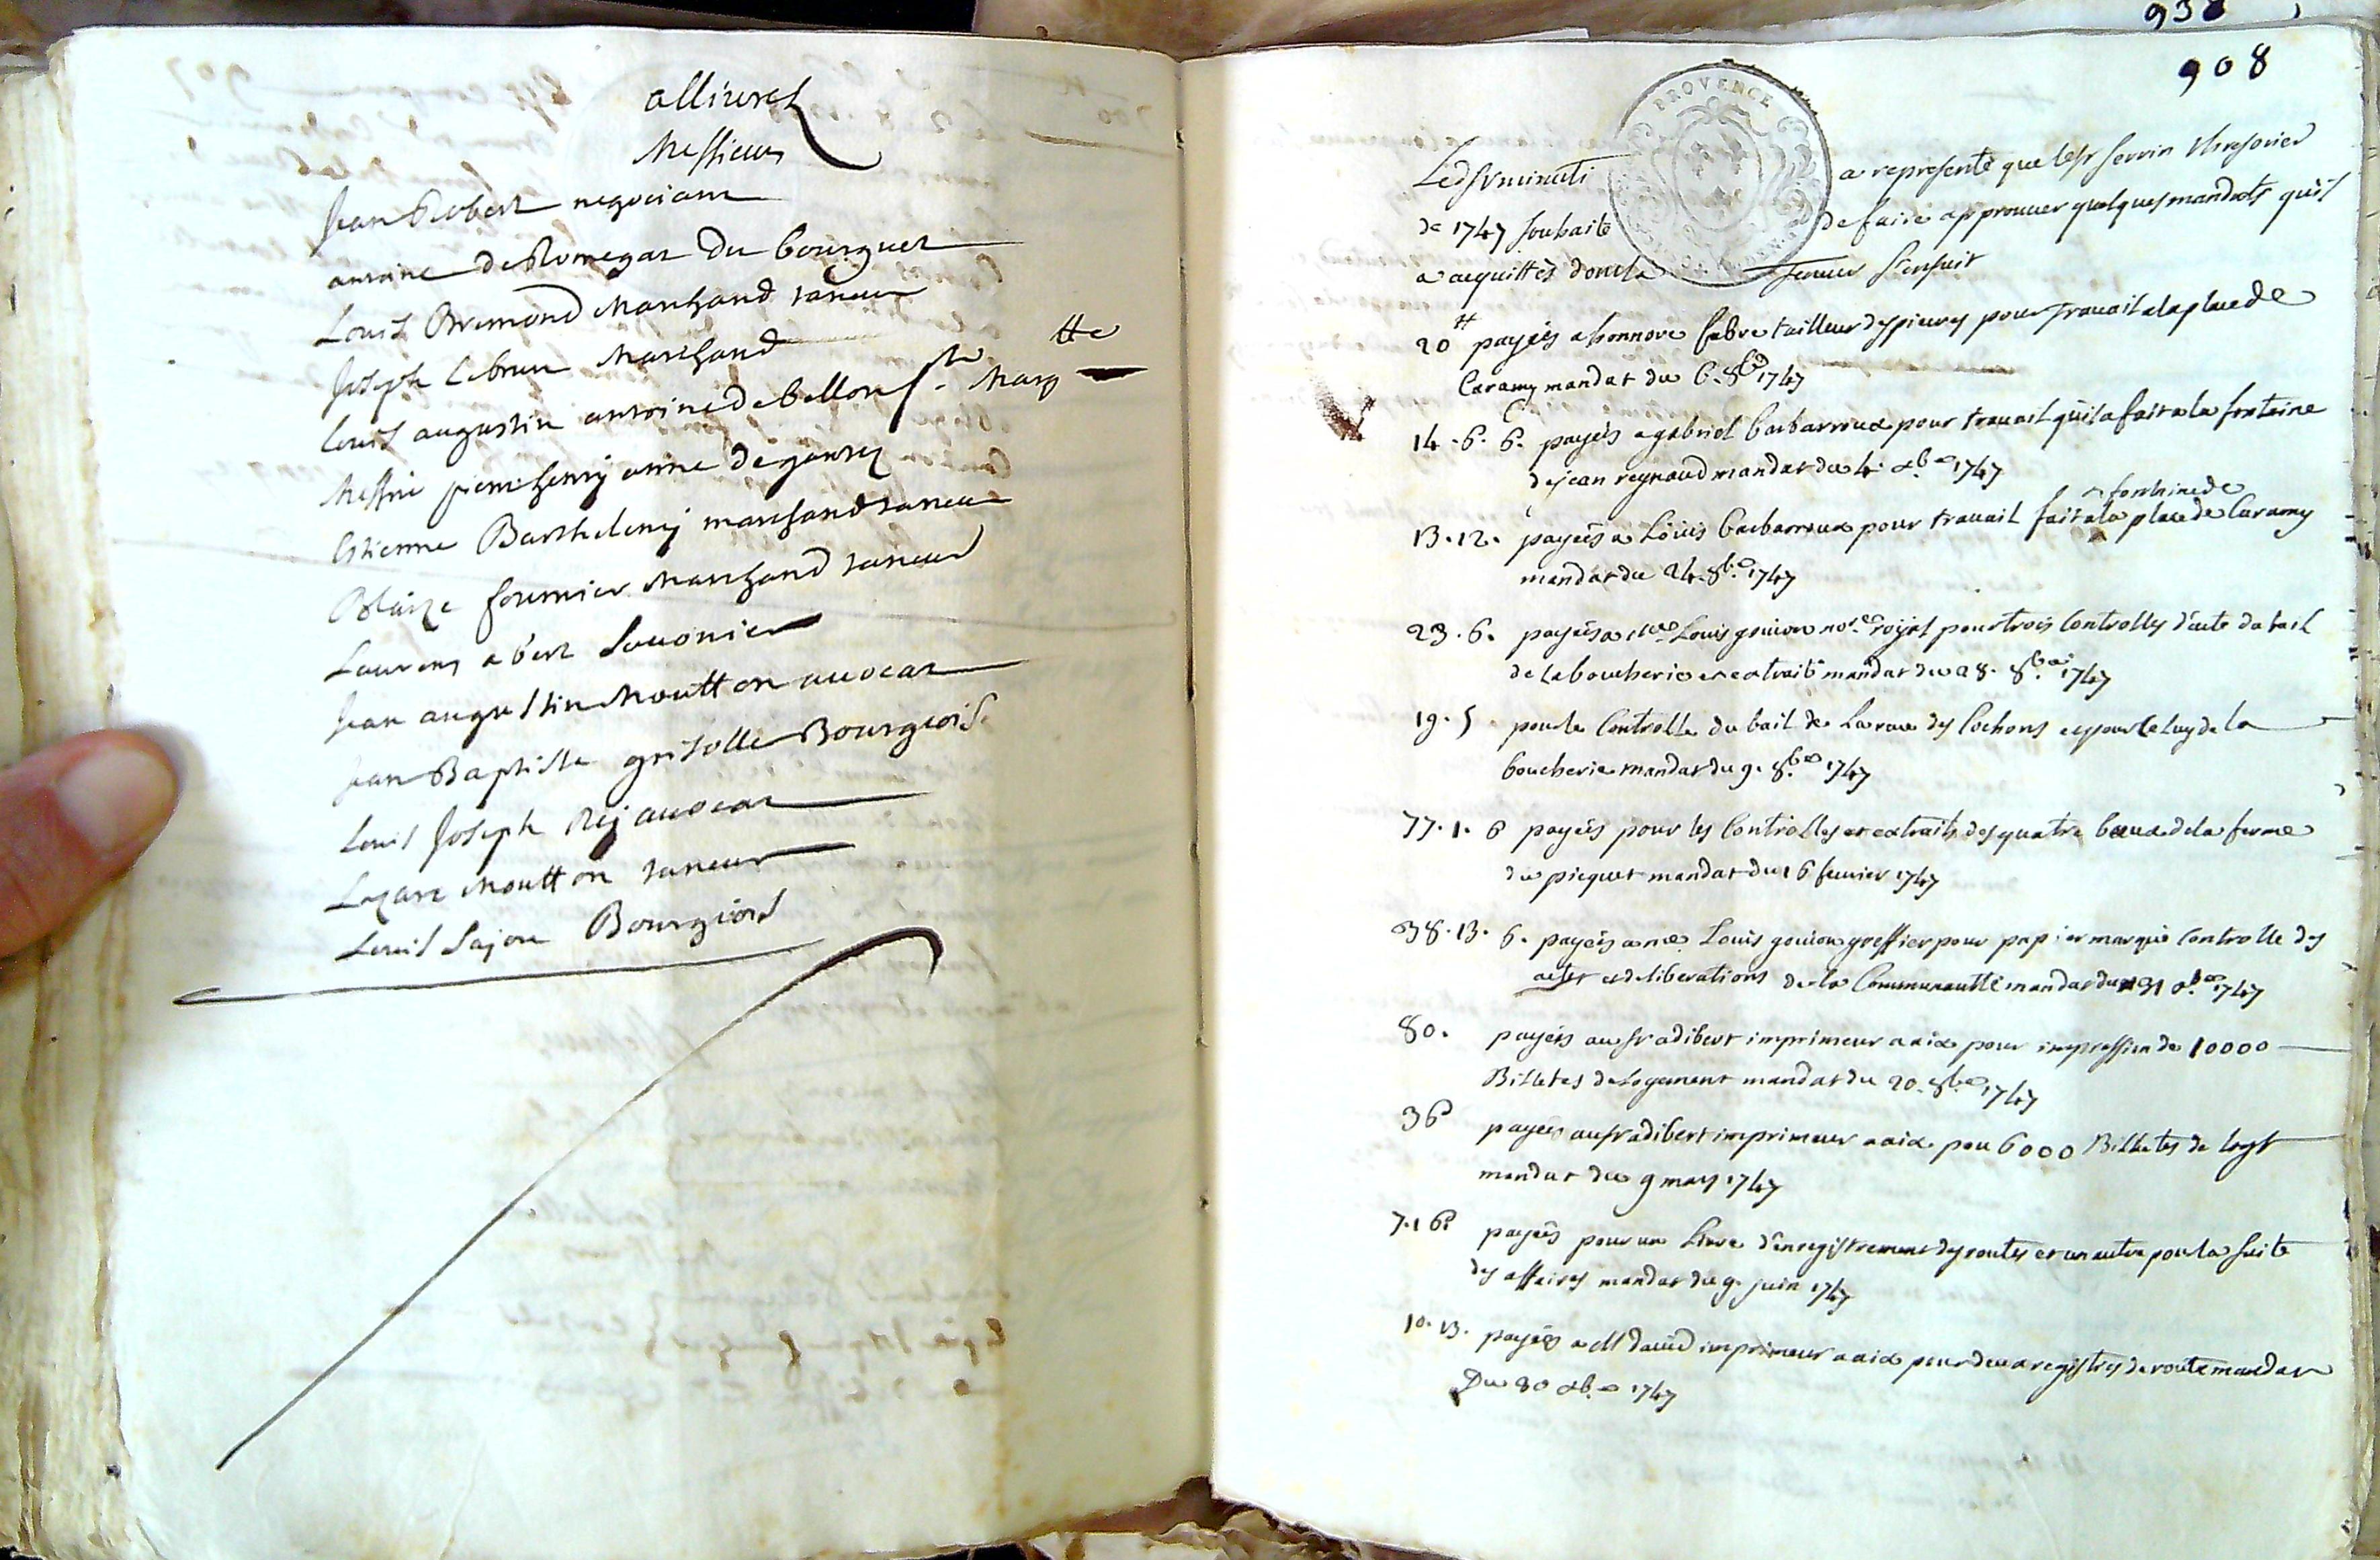 allivrés
Messieurs
Jean Robert negociant
antoine de Romegas du bourguet
Louis Bremond Marchand taneur
Joseph Lebrun Marchand
Louis augustin antoine de bellon Ste Margtte
Messire pierre henry anne de
Estienne Barthelemy marchand taneur
Blaize fournier Marchand taneur
Laurens abert Savonier
Jean augustin Moutton avocat
Jean Baptiste grisolle Bourgeois
Louis Joseph Rey avocat
Lazare Moutton taneur
Louis Bourgeois
938
908
PROVENCE
Ledsr minuti a representé que le sr serrin thresorier
de 1747 souhaite de faire approuver quelques mandats qu'il
a acquittés dont la teneur s'ensuit
20 ₶ payés a honnore fabre tailleur des pieres pour travail a la place de
Caramy mandat du 6. 8bre 1747
14. 6. 6. payés a gabriel barbarroux pour travail qu'il a fait a la fontaine
de jean reynaud mandat du 4. xbre 1747
fontaine de
13. 12. payés a Louis barbarroux pour travail fait a la place de Caramy
mandat du 24. 8bre 1747
23. 6. payés a Me Louis gouion nore royal pour trois Controlles d'acte de bail
de la boucherie et extrait mandat du 28. 8bre 1747
19. 5 pour le Controlle du bail de la rave des Cochons et pour celuy de la
boucherie mandat du 9. 8bre 1747
77. 1. 6 payés pour les Controlles et extraits des quatre baux de la ferme
du picquet mandat du 16 fevrier 1747
38. 13. 6. payés a me Louis gouion greffier pour papier marqué Controlle des
actes et deliberations de la Communautté mandat du 31 xbre 1747
80. payés au sr adibert imprimeur a aix pour impression de 10000
Billetes de Logement mandat du 20. 8bre 1747
36 payés au sr adibert imprimeur a aix pour 6000 Billetes de logt
mandat du 9 mars 1747
7. 16 payés pour un Livre d'enregistrement des routes et un autre pour la suite
des affaires mandat du 9. juin 1747
10. 13. payés a M david imprimeur a aix pour deux registres de route mandat
Du 30 xbre 1747